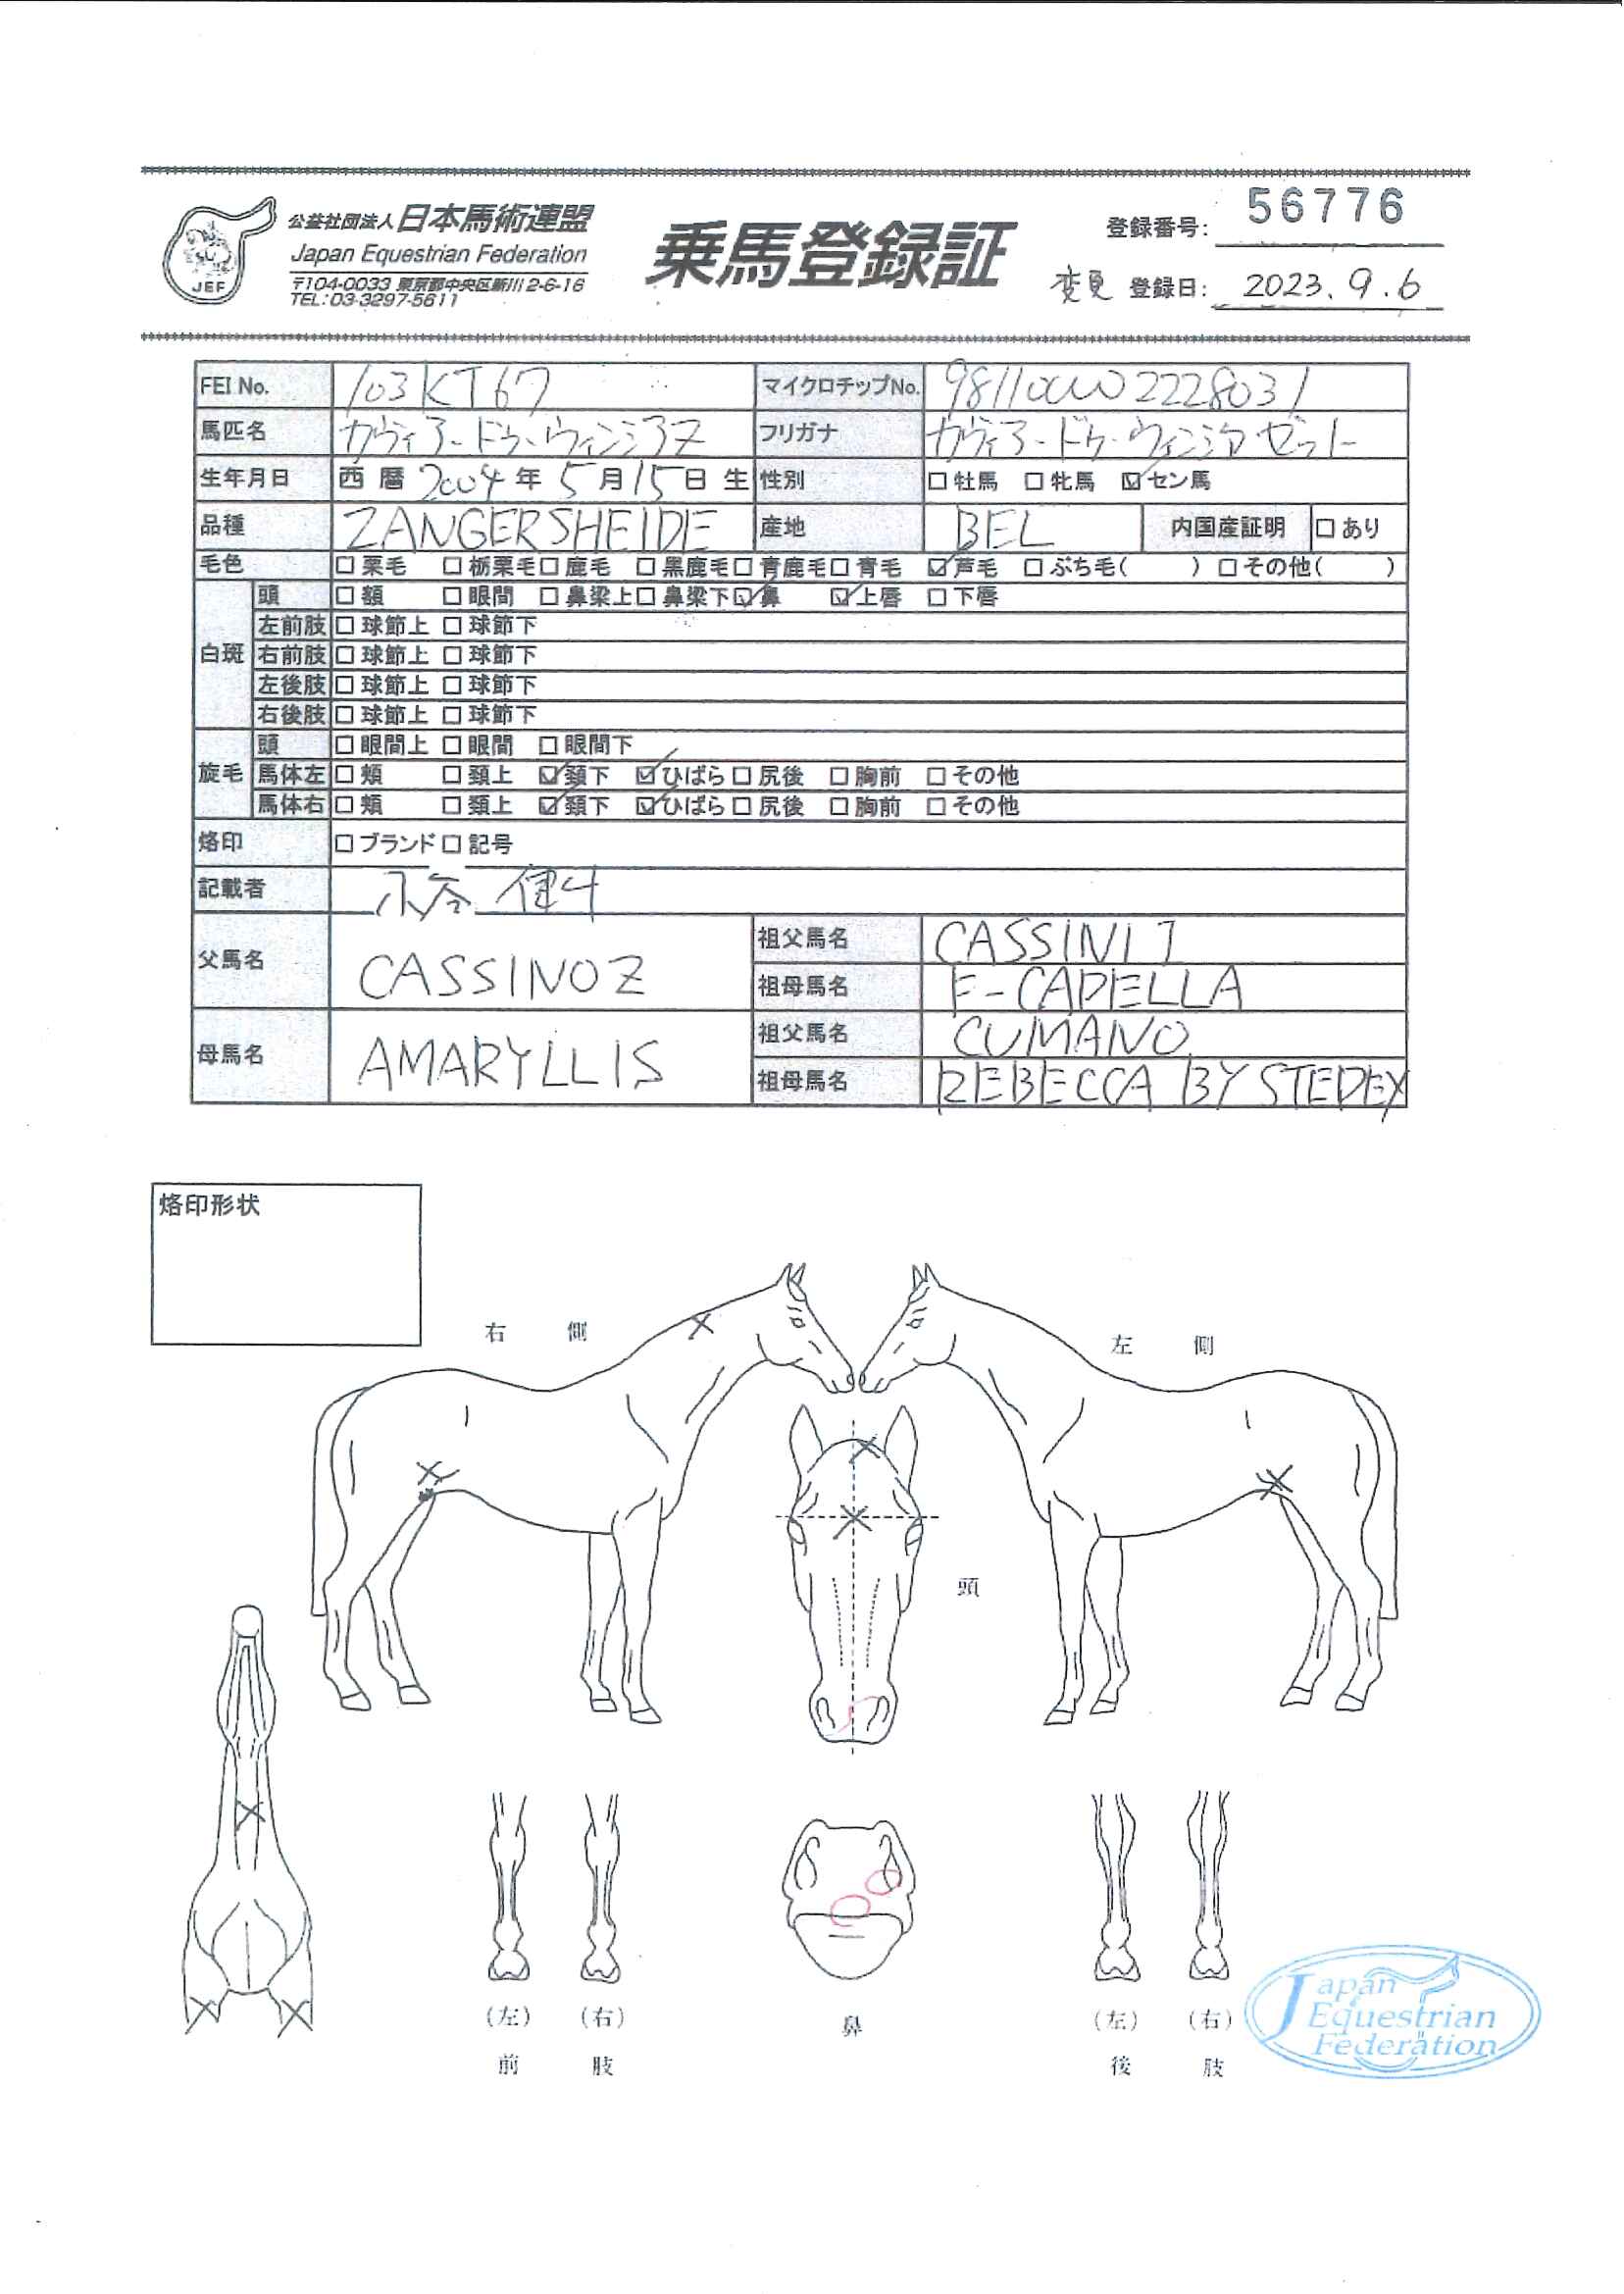 公益社団法人 日本馬術連盟
Japan Equestrian Federation
〒104-0033 東京都中央区新川2-6-16
TEL:03-3297-5611
JEF
乗馬登録証
登録番号: 56776
変更 登録日: 2023.9.6
FEI No. 103KT67 マイクロチップNo.
馬匹名 カヴィアードゥウィンジアZ フリガナ カヴィアードゥウィンジアゼット
生年月日 西暦 2004年 5月15日生 性別 □牡馬 □牝馬 ☑セン馬
品種 ZANGERSHEIDE 産地 BEL 内国産証明 □あり
毛色 □栗毛 □栃栗毛 □鹿毛 □黒鹿毛 □青鹿毛 □青毛 ☑芦毛 □ぶち毛( ) □その他( )
白斑
頭 □額 □眼間 □鼻梁上 □鼻梁下 ☑鼻 ☑上唇 □下唇
左前肢 □球節上 □球節下
右前肢 □球節上 □球節下
左後肢 □球節上 □球節下
右後肢 □球節上 □球節下
旋毛
頭 □眼間上 □眼間 □眼間下
馬体左 □頬 □頚上 ☑頚下 ☑ひばら □尻後 □胸前 □その他
馬体右 □頬 □頚上 ☑頚下 ☑ひばら □尻後 □胸前 □その他
烙印 □ブランド □記号
記載者 小谷
父馬名 CASSINO Z
祖父馬名 CASSINI I
祖母馬名 F-CAPELLA
母馬名 AMARYLLIS
祖父馬名 CUMANO
祖母馬名 REBECCA BY STEDEX
烙印形状
右側
左側
頭
(左) (右)
前肢
鼻
(左) (右)
後肢
Japan
Equestrian
Federation